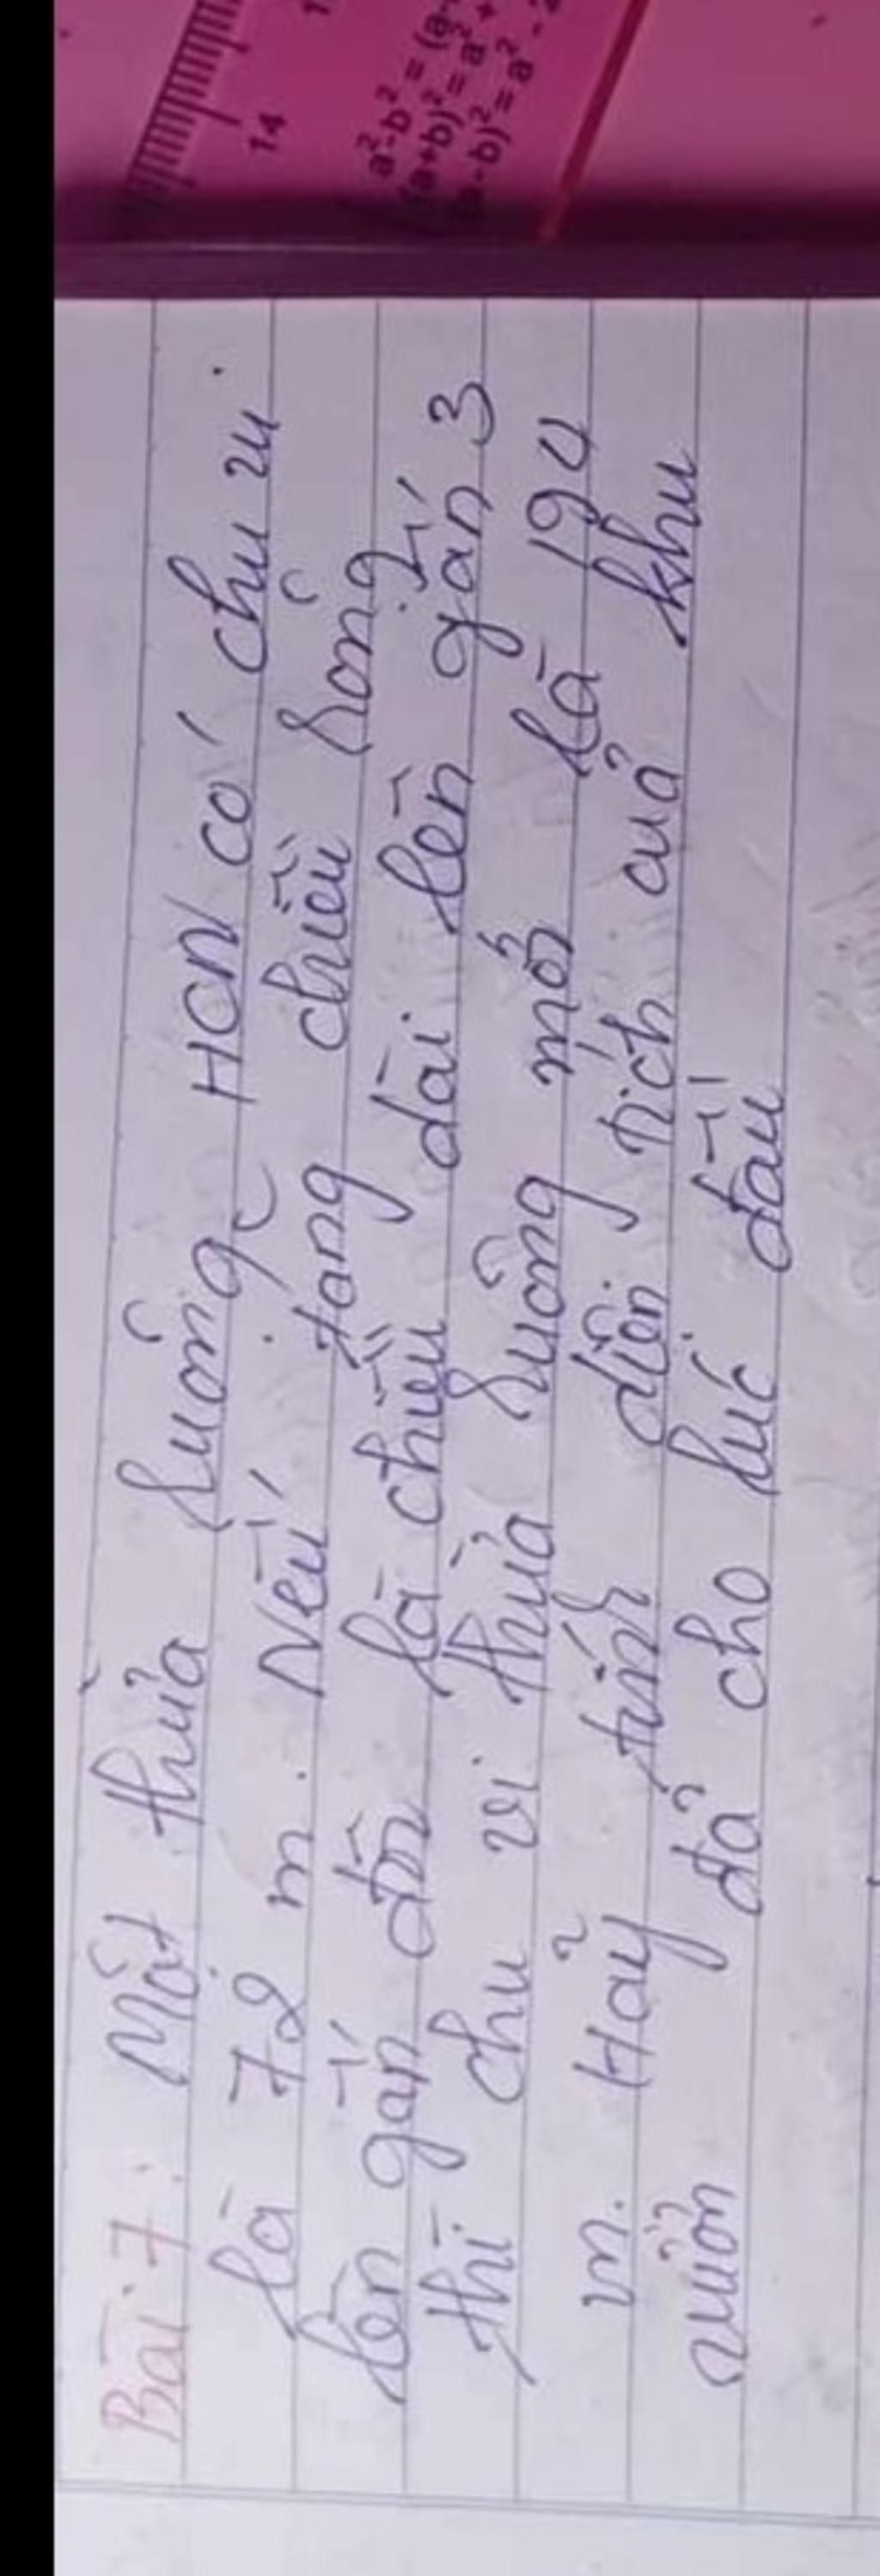 Bài 7: Một thửa ruộng HCN có chu vi
là 72 m. Nếu tăng chiều rộng
lên gấp đôi là chiều dài lên gấp 3
thì chu vi thửa ruộng mới là 194
m. Hãy tính diện tích của khu
vườn đã cho lúc đầu
14
a²-b² = (a-
(a+b)² = a² +
(a-b)² = a² - 2